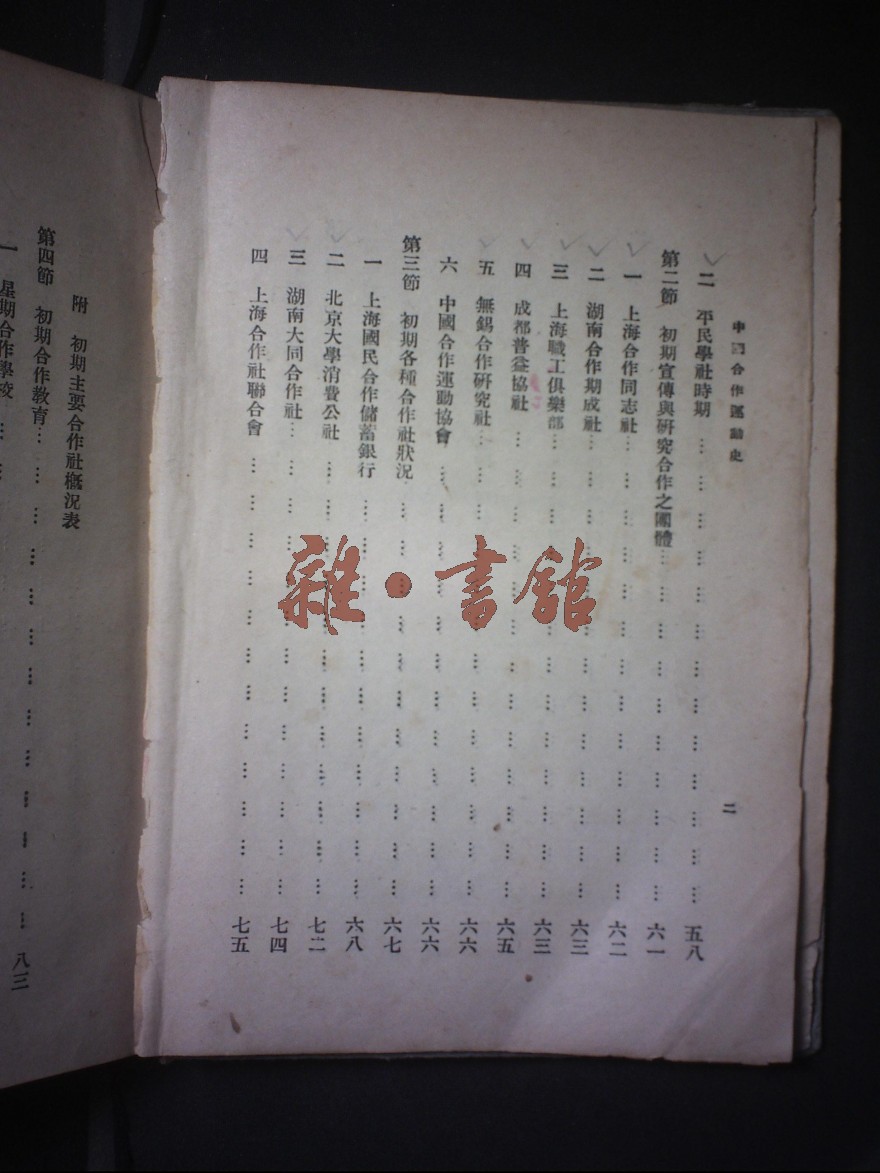 中國合作運動史
二
二 平民學社時期 … … … … … … … … … … … … 五八
第二節 初期宣傳與研究合作之團體 … … … … … … … … … 六一
一 上海合作同志社 … … … … … … … … … … … … 六二
二 湖南合作期成社 … … … … … … … … … … … … 六三
三 上海職工俱樂部 … … … … … … … … … … … … 六三
四 成都普益協社 … … … … … … … … … … … … 六五
五 無錫合作研究社 … … … … … … … … … … … … 六六
六 中國合作運動協會 … … … … … … … … … … … 六六
第三節 初期各種合作社狀况 … … … … … … … … … … … 六七
一 上海國民合作儲蓄銀行 … … … … … … … … … … 六八
二 北京大學消費公社 … … … … … … … … … … … 七二
三 湖南大同合作社 … … … … … … … … … … … … 七四
四 上海合作社聯合會 … … … … … … … … … … … 七五
附 初期主要合作社概況表
第四節 初期合作教育 … … … … … … … … … … … … 八三
一 星期合作學校 … … …
雜·書館